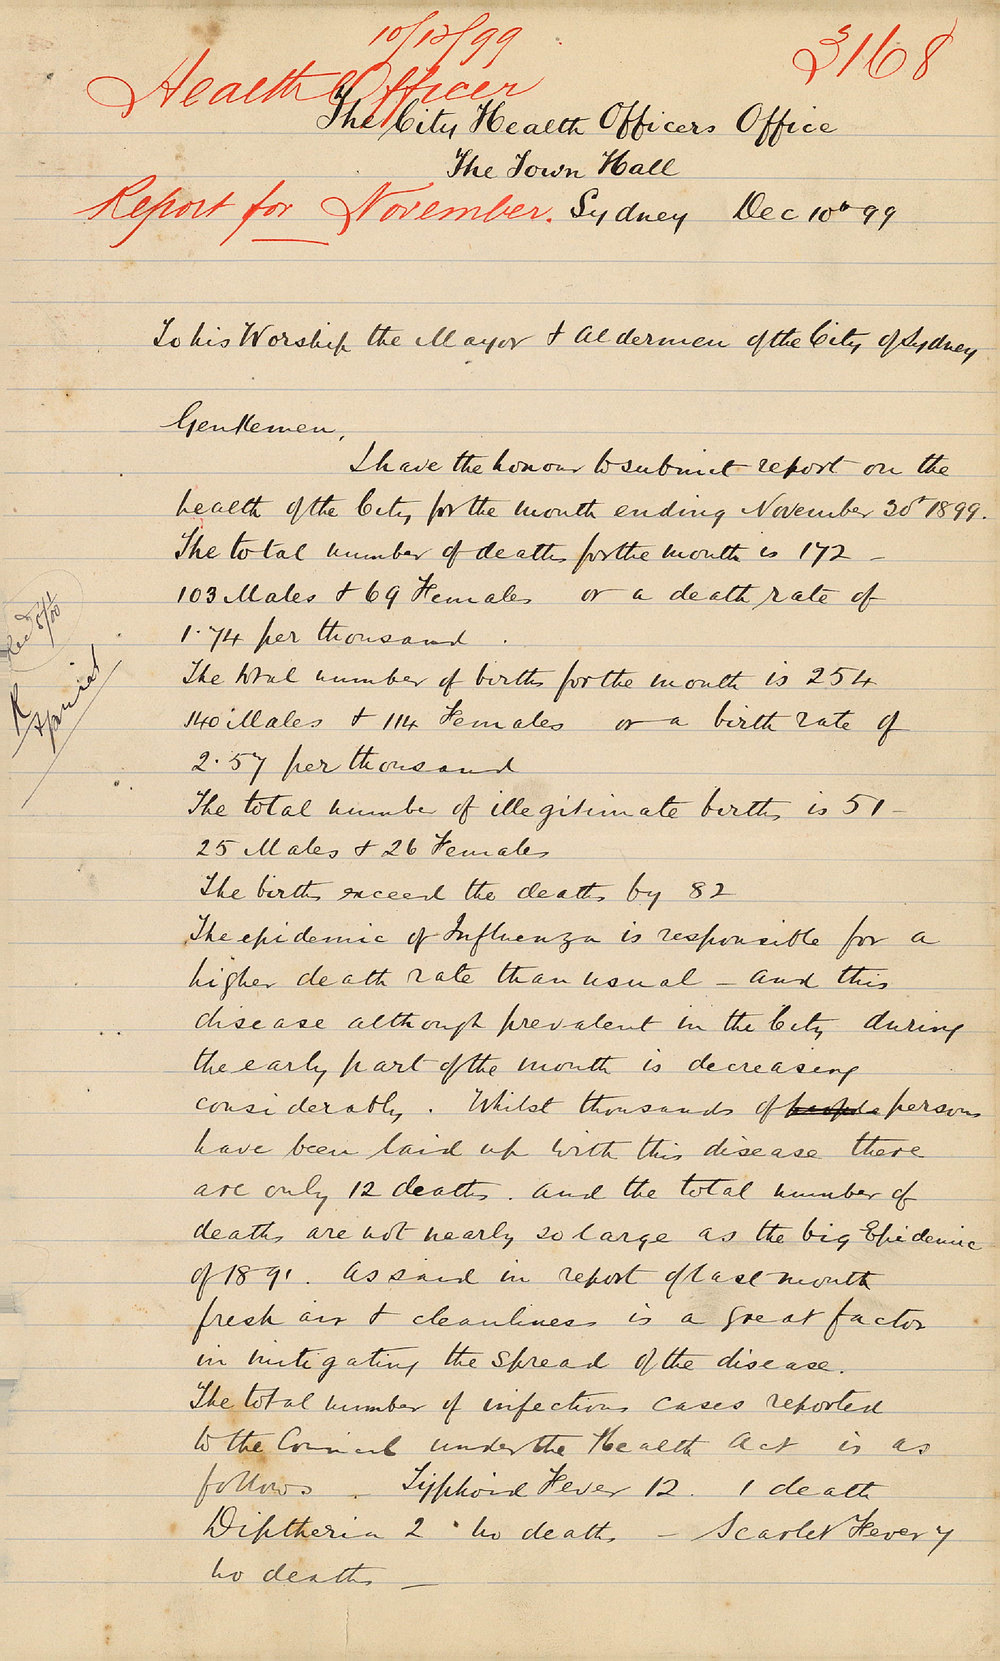 10/12/99
3168
Health Officer
The City Health Officers Office
The Town Hall
Report for November.
Sydney Dec 10th 99
To his Worship the Mayor & Aldermen of the City of Sydney
Gentlemen,
I have the honour to submit report on the
health of the City for the month ending November 30th 1899.
The total number of deaths for the month is 172 -
103 Males & 69 Females or a death rate of
1.74 per thousand.
The total number of births for the month is 254
140 Males & 114 Females or a birth rate of
2.57 per thousand
The total number of illegitimate births is 51 -
25 Males & 26 Females
The births exceed the deaths by 82
The epidemic of Influenza is responsible for a
higher death rate than usual - and this
disease although prevalent in the City during
the early part of the month is decreasing
considerably. Whilst thousands of people persons
have been laid up with this disease there
are only 12 deaths. And the total number of
deaths are not nearly so large as the big Epidemic
of 1891. As said in report of last month
fresh air & cleanliness is a great factor
in mitigating the spread of the disease.
The total number of infectious cases reported
to the Council under the Health Act is as
follows - Typhoid Fever 12. 1 death
Diptheria 2 no deaths - Scarlet Fever 7
no deaths -